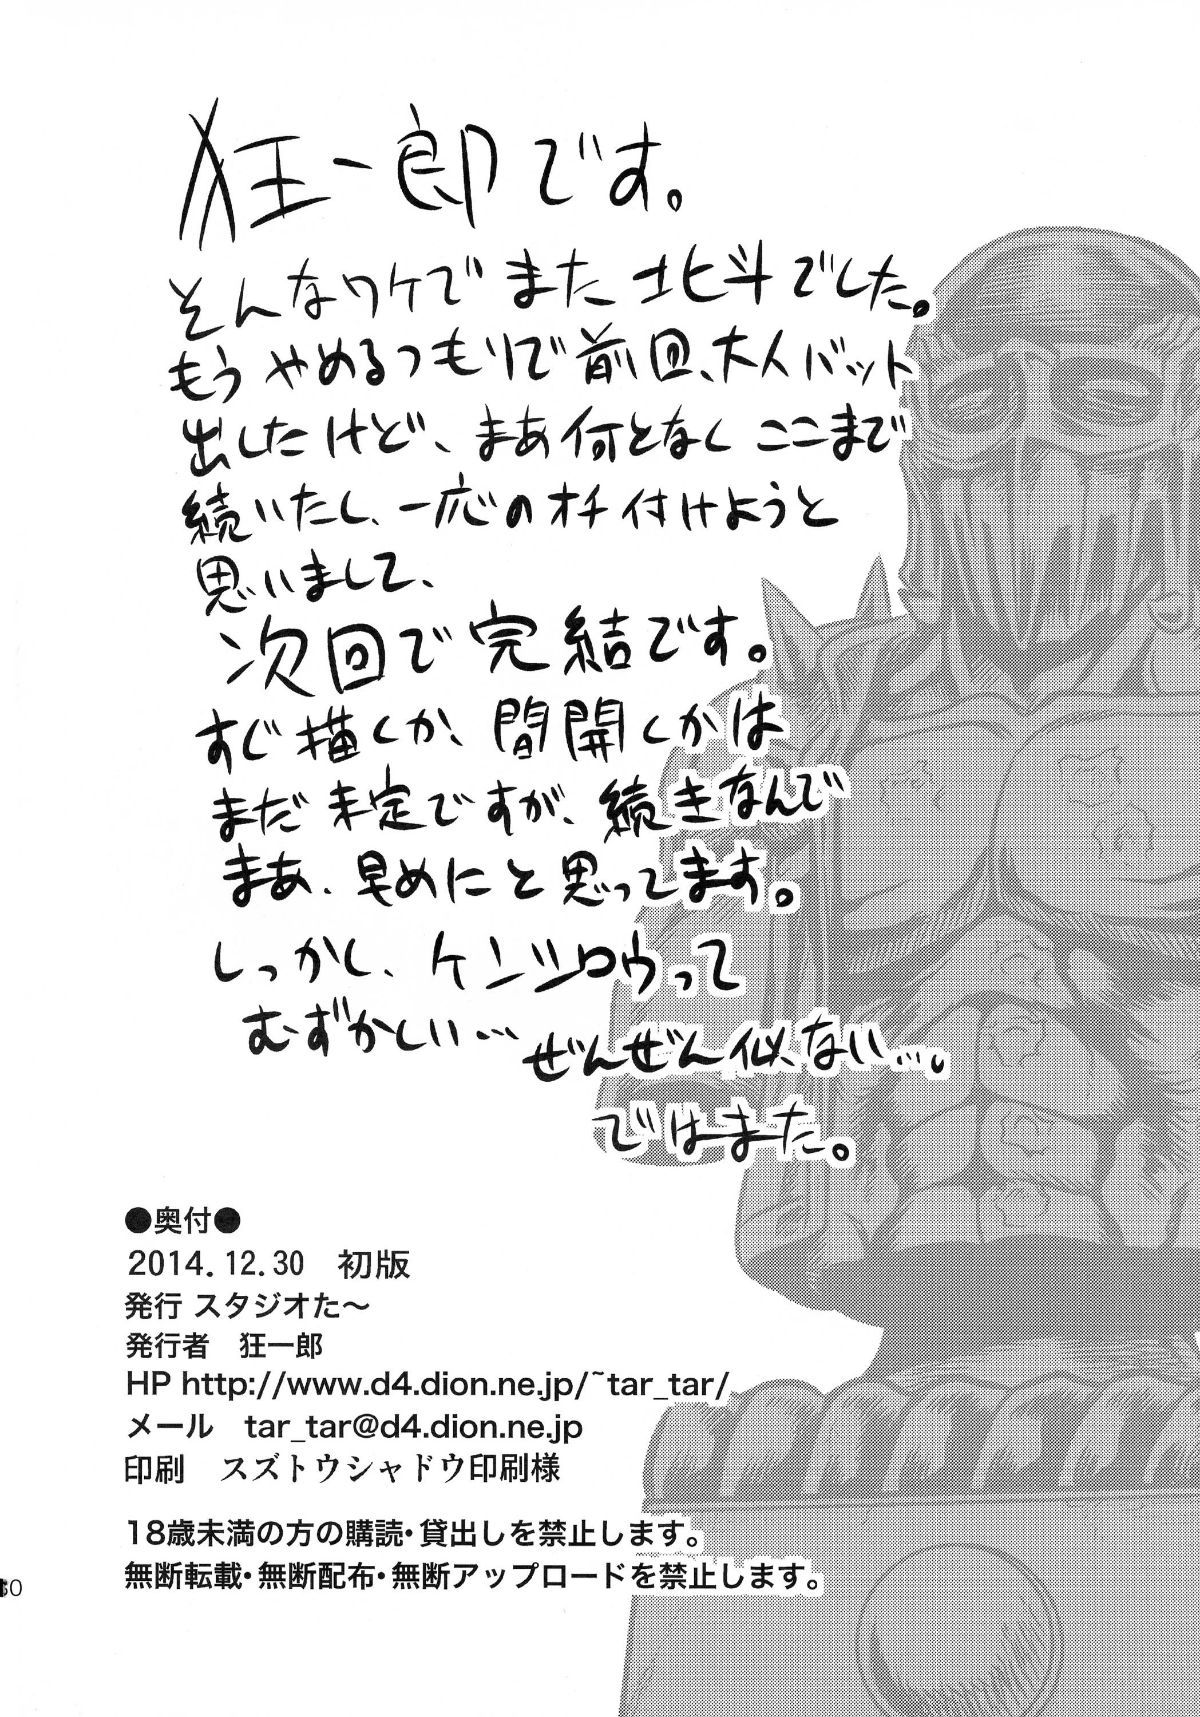 狂一郎です。
そんなワケでまた北斗でした。
もうやめるつもりで前回、大人バット
出したけど、まあ何となくここまで
続いたし、一応のオチ付けようと
思いまして、
次回で完結です。
すぐ描くか、間開くかは
まだ未定ですが、続きなんで
まあ、早めにと思ってます。
しっかし、ケンシロウって
むずかしい…ぜんぜん似ない…。
ではまた。
●奥付●
2014.12.30 初版
発行 スタジオた～
発行者 狂一郎
HP http://www.d4.dion.ne.jp/~tar_tar/
メール tar_tar@d4.dion.ne.jp
印刷 スズトウシャドウ印刷様
18歳未満の方の購読・貸出しを禁止します。
無断転載・無断配布・無断アップロードを禁止します。